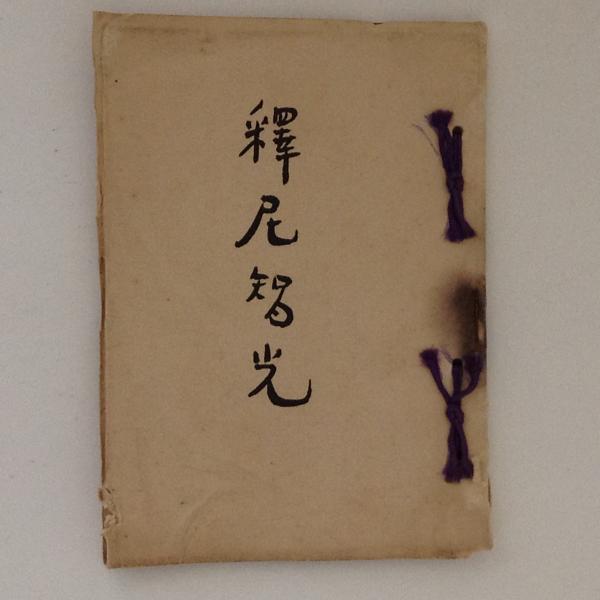 釋尼智光